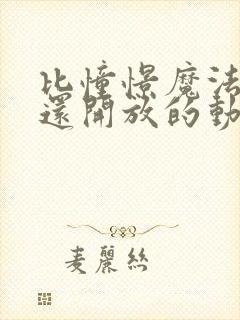 比憧憬魔法
還開放的動
麦麗絲